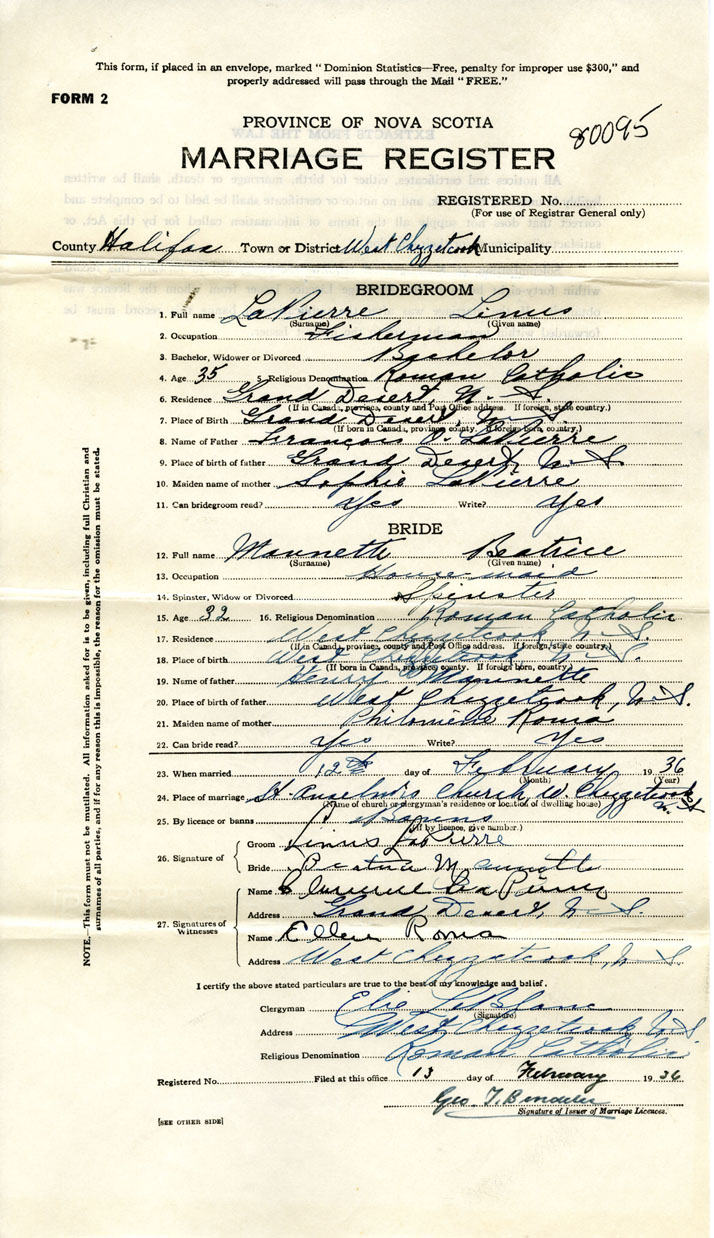 This form, if placed in an envelope, marked "Dominion Statistics—Free, penalty for improper use $300," and
properly addressed will pass through the Mail "FREE."
FORM 2
PROVINCE OF NOVA SCOTIA
80095
MARRIAGE REGISTER
REGISTERED No.
(For use of Registrar General only)
County Halifax Town or District West Chezzetcook Municipality
BRIDEGROOM
1. Full name LaPierre Linus
(Surname) (Given name)
2. Occupation Fisherman
3. Bachelor, Widower or Divorced Bachelor
4. Age 35 5. Religious Denomination Roman Catholic
6. Residence Grand Desert, N. S.
(If in Canada, province, county and Post Office address. If foreign, state country.)
7. Place of Birth Grand Desert, N. S.
(If born in Canada, province county. If foreign born, country.)
8. Name of Father Francois O. LaPierre
9. Place of birth of father Grand Desert, N. S
10. Maiden name of mother Sophie LaPierre
11. Can bridegroom read? Yes Write? Yes
BRIDE
12. Full name Mannette Beatrice
(Surname) (Given name)
13. Occupation House-maid
14. Spinster, Widow or Divorced Spinster
15. Age 32 16. Religious Denomination Roman Catholic
17. Residence West Chezzetcook N. S.
(If in Canada, province, county and Post Office address. If foreign, state country.)
18. Place of birth West Chezzetcook N. S.
(If born in Canada, province county. If foreign born, country.)
19. Name of father Henry Mannette
20. Place of birth of father West Chezzetcook, N. S.
21. Maiden name of mother Philomene Roma
22. Can bride read? Yes Write? Yes
23. When married 12th day of February 1936
(Month) (Year)
24. Place of marriage St. Anselm's Church, W. Chezzetcook N. S
(Name of church or clergyman's residence or location of dwelling house)
25. By licence or banns Banns
(If by licence, give number.)
26. Signature of Groom Linus LaPierre
Bride Beatrice Mannette
27. Signatures of Witnesses
Name LaPierre
Address Grand Desert, N. S.
Name Ellen Roma
Address West Chezzetcook, N. S.
I certify the above stated particulars are true to the best of my knowledge and belief.
Clergyman Elie LeBlanc
(Signature)
Address West Chezzetcook N. S
Religious Denomination Roman Catholic
Registered No. Filed at this office 13 day of February 1936
Geo. T.
Signature of Issuer of Marriage Licences.
[SEE OTHER SIDE]
NOTE.—This form must not be mutilated. All information asked for is to be given, including full Christian and
surnames of all parties, and if for any reason this is impossible, the reason for the omission must be stated.